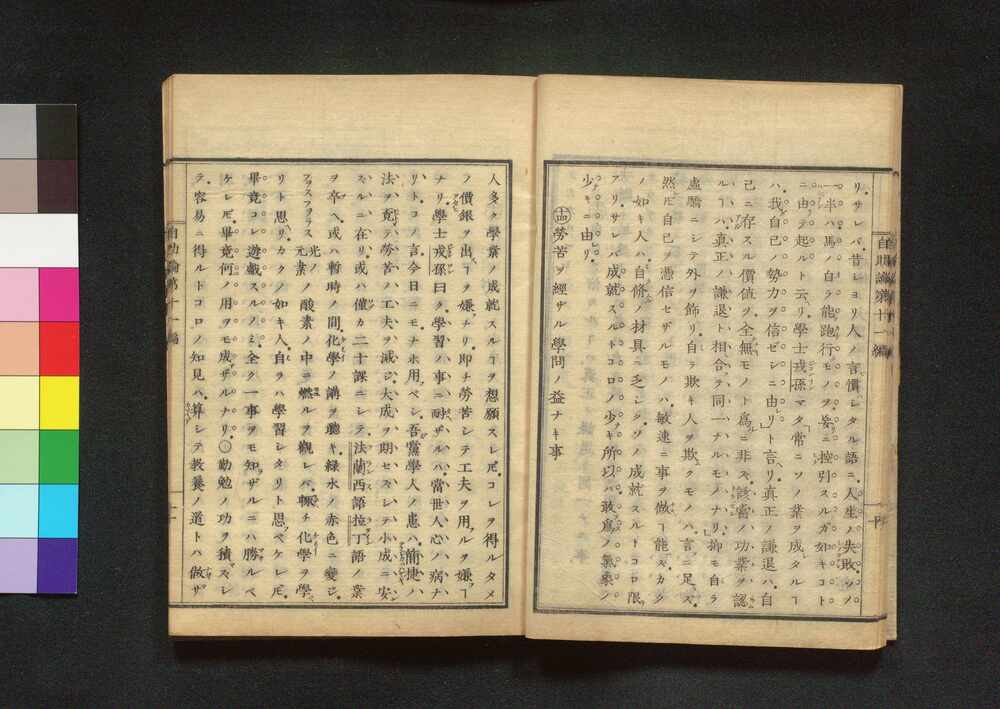 自助論第十一編
リ。サレバ昔シヨリ人ノ言慣シタル語ニ。人生ノ失敗ソノ
一半ハ。馬ノ自ラ能跑行モノヲ。妄ニ控引スルガ如キコト
ニ由テ起ルト云リ。學士戎孫マタ常ニソノ業ヲ成タルヿ
ハ。我自己ノ勢力ヲ信ゼシニ由リト言リ。真正ノ謙退ハ。自
己ニ存スル價値ヲ。全無モノト為ニ非ズ。該當ハ功業ヲ認
ルヿハ。真正ノ謙退ト相合テ同一ナルモノナリ。抑モ自ラ
虚驕ニシテ外ヲ飾リ。自ラ欺キ人ヲ欺クモノハ。言ニ足ズ。
然𪜈自己ヲ憑信セザルモノハ。敏速ニ事ヲ做ヿ能ズ。カク
ノ如キ人ハ。自修ノ材具ニ乏シク。ソノ成就スルトコロ限
アリ。サレバ成就スルトコロノ少キ所以ハ。敢為ノ氣象ノ
少キニ由リ。
十四 勞苦ヲ經ザル學問ノ益ナキ事
十
人多ク學業ノ成就スルヿヲ想願スレ𪜈。コレヲ得ルタメ
ノ價銀ヲ出ヿヲ嫌ナリ。即チ勞苦シテ工夫ヲ用ルヲ嫌ヿ
ナリ。學士戎孫曰ク。學習ノ事ニ耐ザルハ。當世人心ノ病ナ
リト。コノ言今日ニモナホ用ベシ。吾黨學人ノ患ハ。簡捷ハ
法ヲ覓テ。勞苦ノ工夫ヲ減ジ。大成ヲ期セズシテ。小成ニ安
ズルニ在リ。或ハ僅カ二十課ニシテ。法蘭西語拉丁語ノ業
ヲ卒ヘ。或ハ暫時ノ間化學ノ講ヲ聽キ。緑水ノ赤色ニ變ジ。
光ノ元素ノ酸素ノ中ニ燃ルヲ觀レバ。輒チ化學ヲ學
リト思リ。カクノ如キ人。自ラハ學習シタリト思ベケレ𪜈。
畢竟コレ遊戯スルノミ。全ク一事ヲモ知ザルニハ勝ルベ
ケレ𪜈。畢竟何ノ用ヲモ成ザルナリ。○勤勉ノ功ヲ積ズシ
テ。容易ニ得ルトコロノ知見ハ。算シテ教養ノ道トハ做ザ
自助論第十一編